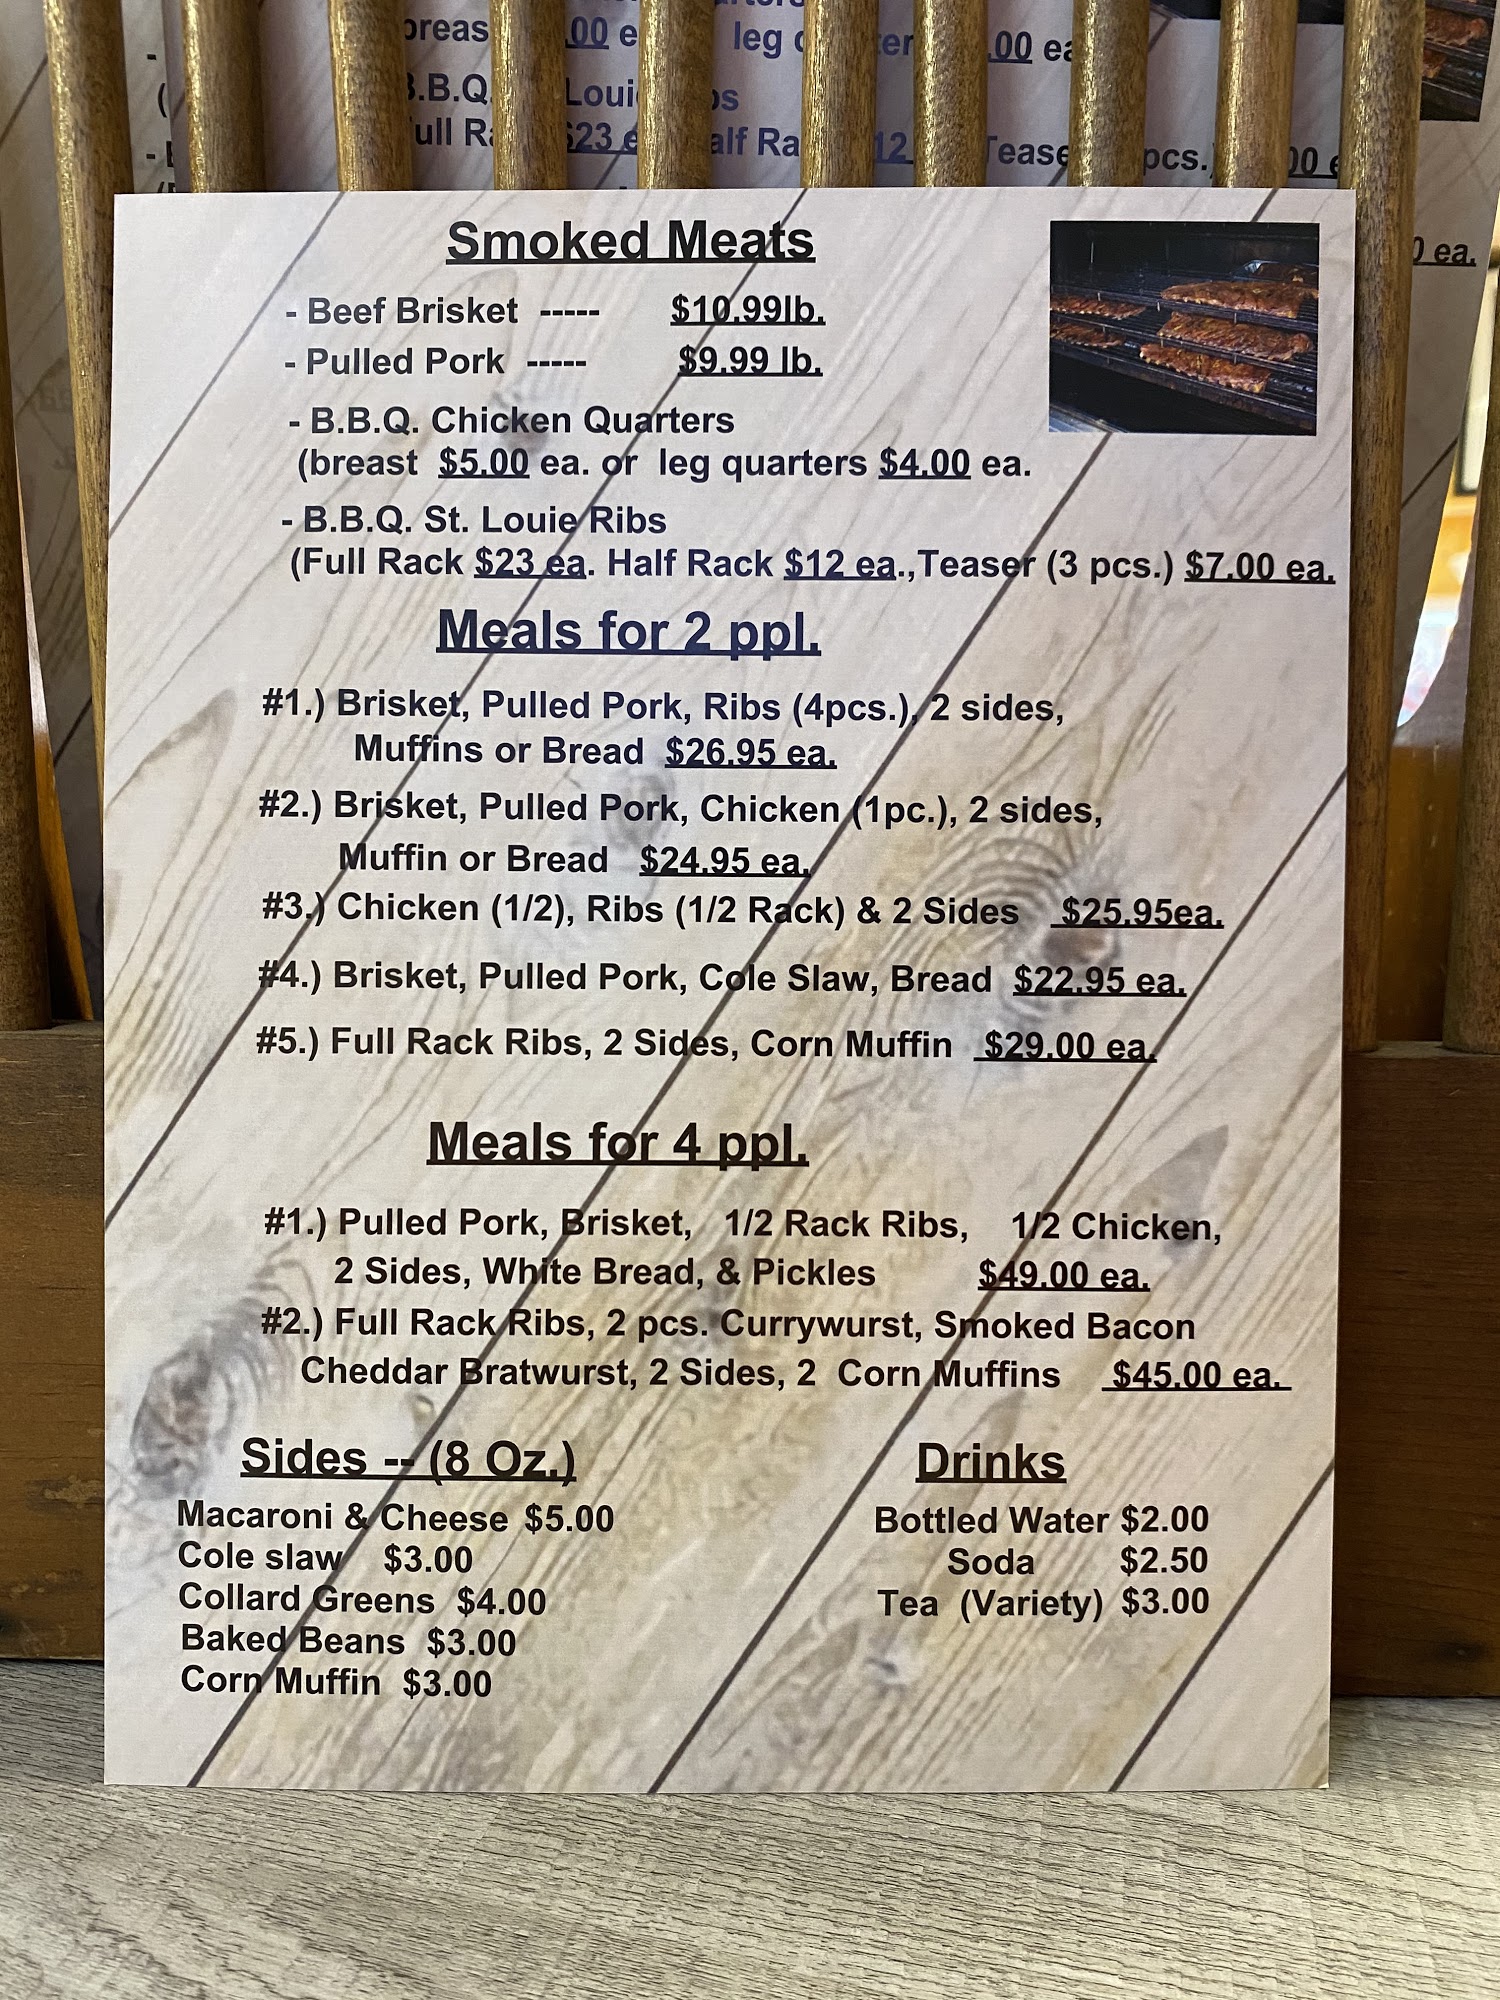 leg
Smoked Meats
- Beef Brisket ----- $10.99lb.
- Pulled Pork ----- $9.99 lb.
- B.B.Q. Chicken Quarters
(breast $5.00 ea. or leg quarters $4.00 ea.
- B.B.Q. St. Louie Ribs
(Full Rack $23 ea. Half Rack $12 ea.,Teaser (3 pcs.) $7.00 ea.
Meals for 2 ppl.
#1.) Brisket, Pulled Pork, Ribs (4pcs.), 2 sides,
Muffins or Bread $26.95 ea.
#2.) Brisket, Pulled Pork, Chicken (1pc.), 2 sides,
Muffin or Bread $24.95 ea.
#3.) Chicken (1/2), Ribs (1/2 Rack) & 2 Sides $25.95ea.
#4.) Brisket, Pulled Pork, Cole Slaw, Bread $22.95 ea.
#5.) Full Rack Ribs, 2 Sides, Corn Muffin $29.00 ea.
Meals for 4 ppl.
#1.) Pulled Pork, Brisket, 1/2 Rack Ribs, 1/2 Chicken,
2 Sides, White Bread, & Pickles $49.00 ea.
#2.) Full Rack Ribs, 2 pcs. Currywurst, Smoked Bacon
Cheddar Bratwurst, 2 Sides, 2 Corn Muffins $45.00 ea.
Sides -- (8 Oz.)
Macaroni & Cheese $5.00
Cole slaw $3.00
Collard Greens $4.00
Baked Beans $3.00
Corn Muffin $3.00
Drinks
Bottled Water $2.00
Soda $2.50
Tea (Variety) $3.00